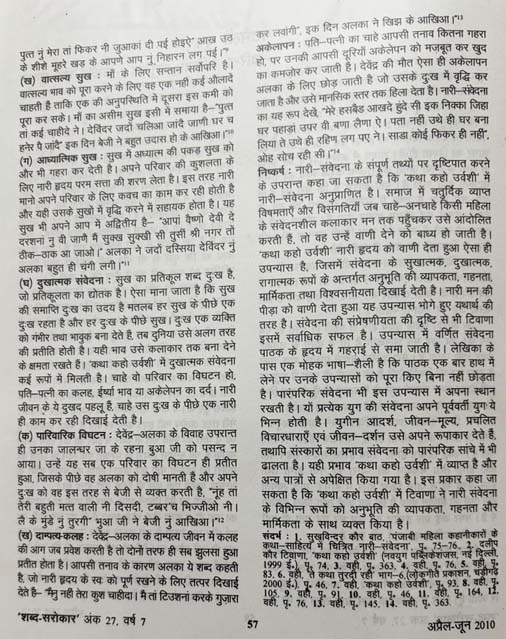 पुत्त नूं मेरा तां फिकर नीं जुआकां दी पई होइऐ' आख उठ
के शीशे मूहरे खड़ के आपणे आप नूं निहारन लग पई।"
(ख) वात्सल्य सुख : माँ के लिए सन्तान सर्वोपरि है।
वात्सल्य भाव को पूरा करने के लिए वह एक नहीं कई औलादें
चाहती है ताकि एक की अनुपस्थिति में दूसरा इस कमी को
पूरा कर सके। माँ का असीम सुख इसी में समाया है–"पुत्त
तां कई चाहीदे ने। देविंदर जदों चलिआ जांदै जाणी घर च
हनेर पै जांदै' इक दिन बेजी ने बहुत उदास हो के आखिआ।"¹⁰
(ग) आध्यात्मिक सुख : सुख में अध्यात्म की पकड़ सुख को
और भी गहरा कर देती है। अपने परिवार की कुशलता के
लिए नारी हृदय परम सत्ता की शरण लेता है। इस तरह नारी
मानो अपने परिवार के लिए कवच का काम कर रही होती है
और यही उसके सुखों में वृद्धि करने में सहायक होता है। यह
सुख भी अपने आप में अद्वितीय है– "आपां वैष्णो देवी दे
दरशनां नुं वी जाणै मैं सुक्ख सुक्खी सी तुसीं श्री नगर तों
ठीक–ठाक आ जाओ।' अलका ने जदों दस्सिया देविंदर नूं
अलका बहुत ही चंगी लगी।"¹¹
(घ) दुःखात्मक संवेदना : सुख का प्रतिकूल शब्द दुःख है,
जो प्रतिकूलता का द्योतक है। ऐसा माना जाता है कि सुख
की समाप्ति दुःख का उदय है मतलब हर सुख के पीछे एक
दुःख रहता है और हर दुःख के पीछे सुख। दुःख एक व्यक्ति
को गंभीर तथा भावुक बना देते है, तब दुनिया उसे अलग तरह
की प्रतीति होती है। यही भाव उसे कलाकार तक बना देने
के क्षमता रखते है। 'कथा कहो उर्वशी' में दुखात्मक संवेदना
कई रूपों में मिलती है। चाहे वो परिवार का विघटन हो,
पति–पत्नी का कलह, ईर्ष्या भाव या अकेलेपन का दर्द। नारी
जीवन के ये दुखद पहलू है, चाहे उस दुःख के पीछे एक नारी
ही काम कर रही दिखाई देती है।
(क) पारिवारिक विघटन : देवेन्द्र–अलका के विवाह उपरान्त
ही उनका जालन्धर जा के रहना बुआ जी को पसन्द न
आया। उन्हें यह सब एक परिवार का विघटन ही प्रतीत
हुआ, जिसके पीछे वह अलका को दोषी मानती है और अपने
दुःख को वह इस तरह से बेजी से व्यक्त करती है, "नूंह तां
तेरी बहुती मत्त वाली नी दिसदी, टब्बर'च भिज्जीओ नी।
लै के मुंडे नूं तुरगी' भुआ जी ने बेजी नूं आखिआ।"¹²
(ख) दाम्पत्य-कलह : देवेन्द्र–अलका के दाम्पत्य जीवन में कलह
की आग जब प्रवेश करती है तो दोनों तरफ ही सब झुलसा हुआ
प्रतीत होता है। आपसी तनाव के कारण अलका ये शब्द कहती
है, जो नारी हृदय के स्वः को पूर्ण रखने के लिए तत्पर दिखाई
देते है– "मैंनु नहीं तेरा कुश चाहीदा। मैं तां टिउशनां करके गुज़ारा
कर लवांगी", इक दिन अलका ने खिझ के आखिआ।"¹³
अकेलापन : पति–पत्नी का चाहे आपसी तनाव कितना गहरा
हो, पर उनकी आपसी दूरियाँ अकेलेपन को मजबूत कर खुद
का कमजोर कर जाती है। देवेन्द्र की मौत ऐसा ही अकेलापन
अलका के लिए छोड़ जाती है जो उसके दुःख में वृद्धि कर
जाता है और उसे मानसिक स्तर तक हिला देता है। नारी–संवेदना
का यह रूप देखें, "मेरे हसबैंड आखदे हुंदे सी इक निक्का जिहा
घर पहाड़ां उपर वी बणा लैणा ऐ। पता नहीं उथे ही घर बना
लिया ते उथे ही रहिण लग पए ने। साडा कोई फिकर ही नहीं",
ओह सोच रही सी।"¹⁴
निष्कर्ष : नारी–संवेदना के संपूर्ण तथ्यों पर दृष्टिपात करने
के उपरान्त कहा जा सकता है कि 'कथा कहो उर्वशी' में
नारी–संवेदना अनुप्राणित है। समाज में चतुर्दिक व्याप्त
विषमताएँ और विसंगतियाँ जब चाहे–अनचाहे किसी महिला
के संवेदनशील कलाकार मन तक पहुँचकर उसे आंदोलित
करती हैं, तो वह उन्हें वाणी देने को बाध्य हो जाती है।
'कथा कहो उर्वशी' नारी हृदय को वाणी देता हुआ ऐसा ही
उपन्यास है, जिसमें संवेदना के सुखात्मक, दुखात्मक,
रागात्मक रूपों के अन्तर्गत अनुभूति की व्यापकता, गहनता,
मार्मिकता तथा विश्वसनीयता दिखाई देती है। नारी मन की
पीड़ा को वाणी देता हुआ यह उपन्यास भोगे हुए यथार्थ की
तरह है। संवेदना की संप्रेषणीयता की दृष्टि से भी टिवाणा
इसमें सर्वाधिक सफल है। उपन्यास में वर्णित संवेदना
पाठक के हृदय में गहराई से समा जाती है। लेखिका के
पास एक मोहक भाषा–शैली है कि पाठक एक बार हाथ में
लेने पर उनके उपन्यासों को पूरा किए बिना नहीं छोड़ता
है। पारंपरिक संवेदना भी इस उपन्यास में अपना स्थान
रखती है। यों प्रत्येक युग की संवेदना अपने पूर्ववर्ती युग से
भिन्न होती है। युगीन आदर्श, जीवन–मूल्य, प्रचलित
विचारधाराएँ एवं जीवन–दर्शन उसे अपने रूपाकार देते हैं,
तथापि संस्कारों का प्रभाव संवेदना को पारंपरिक सांचे में भी
ढालता है। यही प्रभाव 'कथा कहो उर्वशी' में व्याप्त है और
अन्य पात्रों से अपेक्षित किया गया है। इस प्रकार कहा जा
सकता है कि 'कथा कहो उर्वशी' में टिवाणा ने नारी संवेदना
के विभिन्न रूपों को अनुभूति की व्यापकता, गहनता और
मार्मिकता के साथ व्यक्त किया है।
संदर्भ : 1. सुखविन्दर कौर बाठ, 'पंजाबी महिला कहानीकारों के
कथा–साहित्य में चित्रित नारी–संवेदना', पृ. 75–76. 2. दलीप
कौर टिवाणा, 'कथा कहो उर्वशी' (नवयुग पब्लिकेशनज, नई दिल्ली,
1999 ई.), पृ. 74, 3. वही, पृ. 363, 4. वही, पृ. 76, 5. वही, पृ.
83, 6. वही, ते कथा तुरदी रही' भाग–6 (लोकगीत प्रकाशन, चंडीगढ़
2000 ई.), पृ. 46, 7. वही, 'कथा कहो उर्वशी', पृ. 93, 8. वही, पृ.
105. 9. वही, पृ. 91. 10. वही, पृ. 46, 11. वही, पृ. 164, 12.
वही, पृ. 76, 13. वही, पृ. 145, 14. वही, पृ. 363.
'शब्द-सरोकार' अंक 27, वर्ष 7
57
अप्रैल-जून 2010